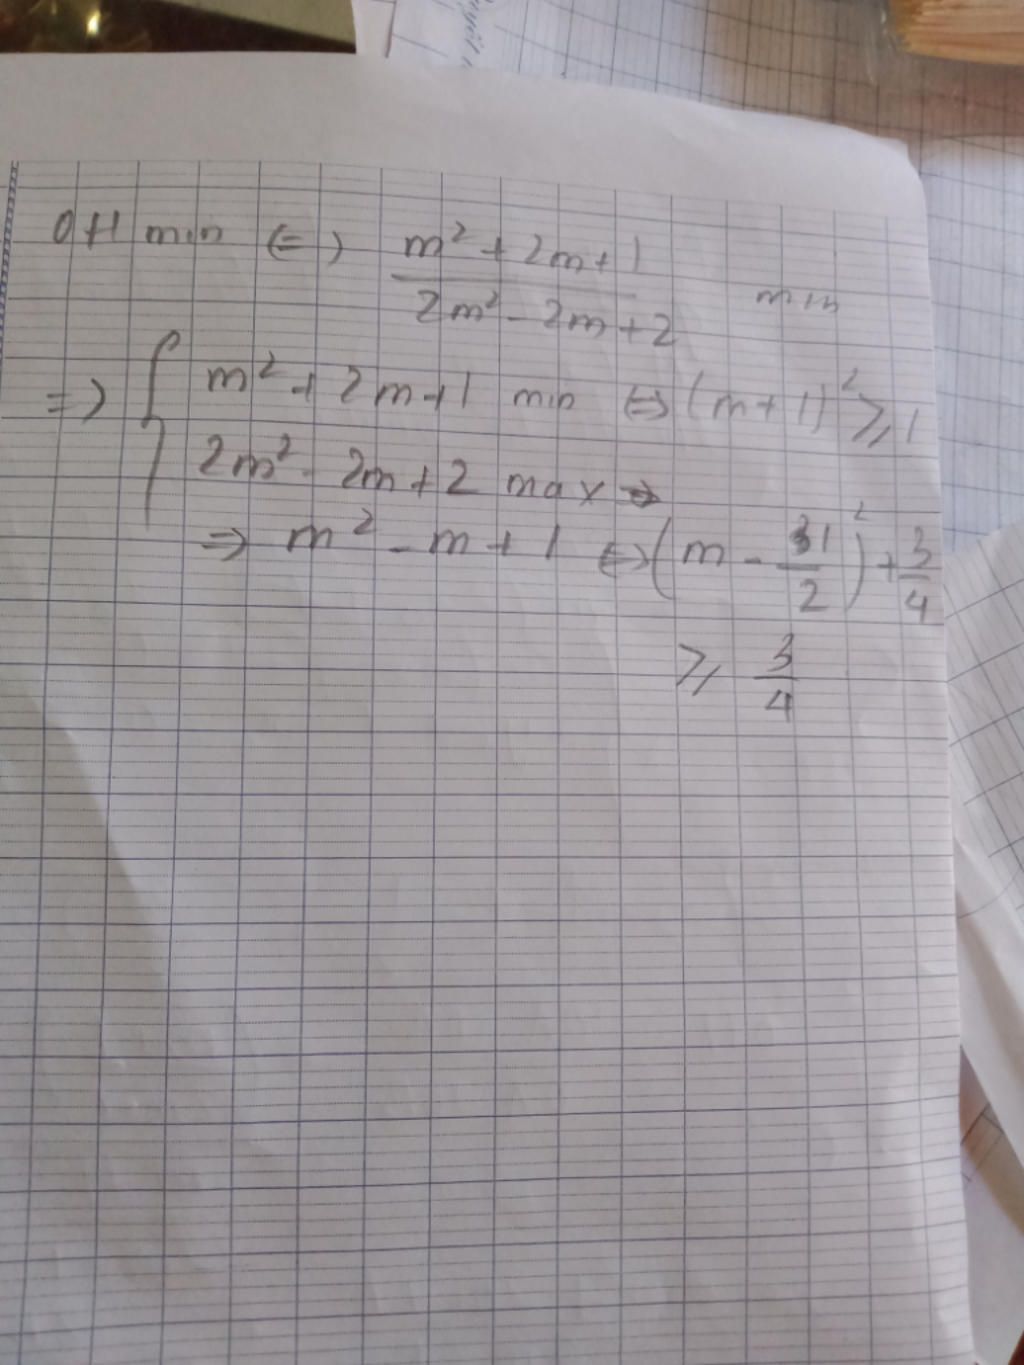 OH min <=> m² + 2m + 1
2m² - 2m + 2 min
=> { m² + 2m + 1 min <=> (m + 1)² ⩾ 1
2m² - 2m + 2 max =>
=> m² - m + 1 <=> (m - 1/2)² + 3/4
⩾ 3/4